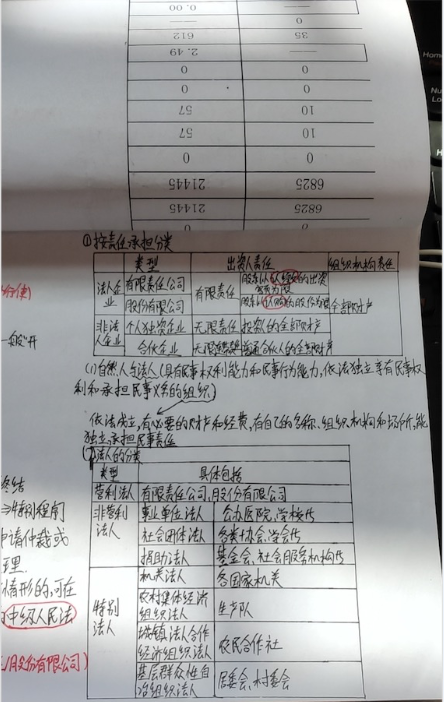 0.00
—
612
35
2.49
—
0
0
0
0
57
10
57
10
0
0
21445
6825
21445
6825
①按责任承担分类
类型 出资人责任 组织机构责任
法人企业 有限责任公司 有限责任 股东以认缴的出资额为限 全部财产
股份有限公司 股东以认购的股份为限
非法人企业 个人独资企业 无限责任 投资人的全部财产
合伙企业 无限连带 普通合伙人的全部财产
(1)自然人与法人(具有民事权利能力和民事行为能力,依法独立享有民事权
利和承担民事义务的组织)
依法成立,有必要的财产和经费,有自己的名称、组织机构和场所,能
独立承担民事责任
法人的分类
类型 具体包括
营利法人 有限责任公司,股份有限公司
非营利法人 事业单位法人 公办医院,学校
社会团体法人 各类协会,学会
捐助法人 基金会,社会服务机构
特别法人 机关法人 各国家机关
农村集体经济组织法人 生产队
城镇 法合作经济组织法人 农民合作社
基层群众性自治组织法人 居委会,村委会
一般"开
终结
特别程序
申请仲裁或
理
情形的,可在
中级人民法
股份有限公司)